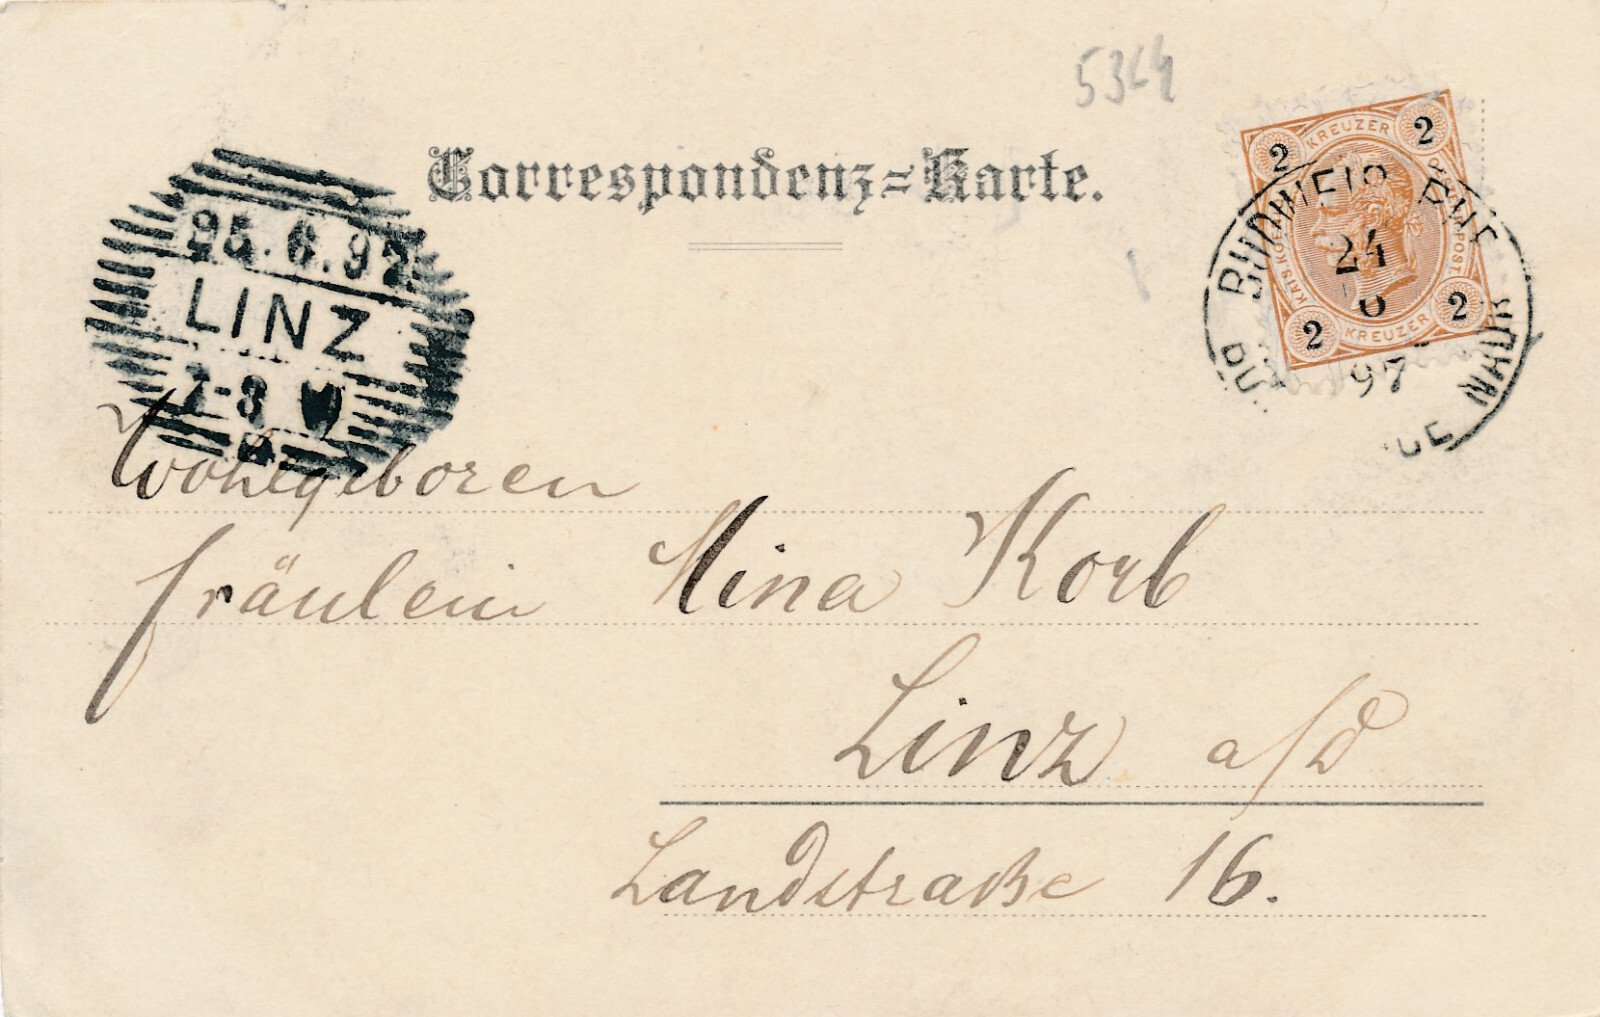 5364
Correspondenz=Karte.
2 KREUZER 2
KAIS. KOEN. POST.
2 KREUZER 2
BUDWEIS
24
6
97
25.6.97
LINZ
7-8
Wohlgeboren
Fräulein Mina Korb
Linz a/D
Landstraße 16.